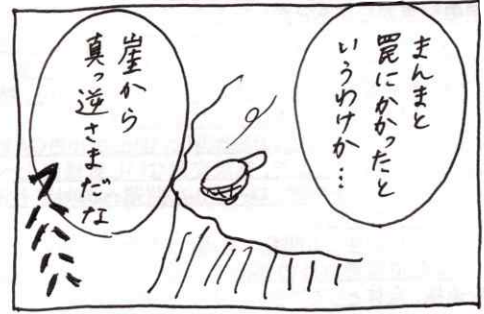 まんまと
罠にかかったと
いうわけか…
崖から
真っ逆さまだな
フハハハハ